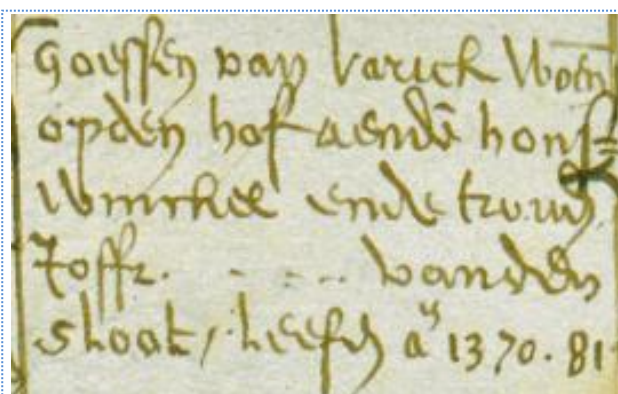 Goessen van Varick Woen
opden hof aende hons=
winckel ende trouwd
Joffr. - - -. vanden
sloot, leefd a° 1370. 81